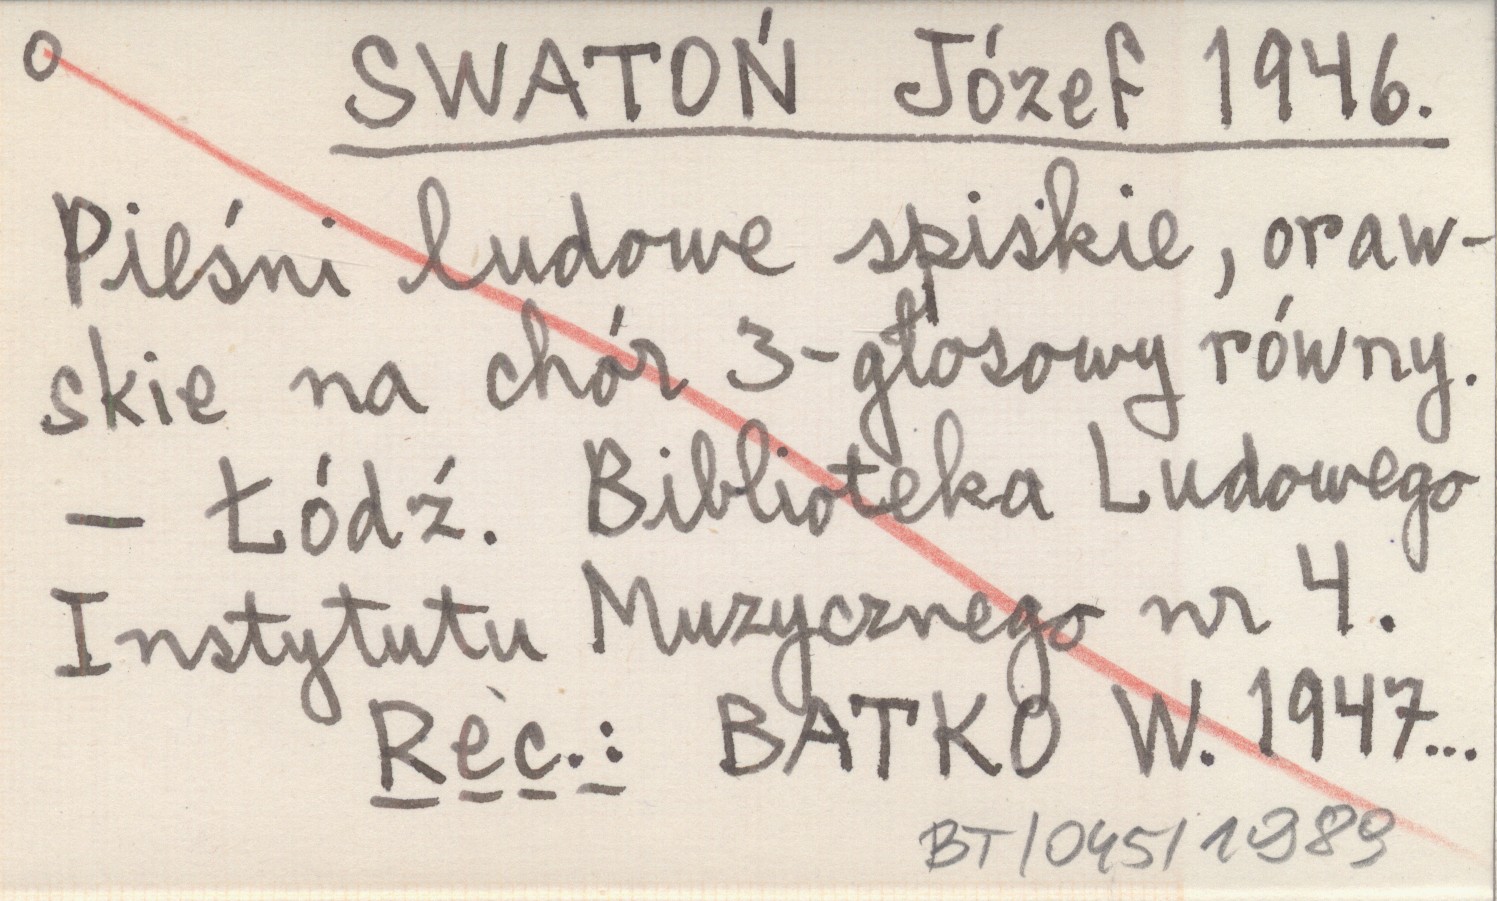 o SWATOŃ Józef 1946.
Pieśni ludowe spiskie, oraw-
skie na chór 3-głosowy równy.
— Łódź. Biblioteka Ludowego
Instytutu Muzycznego nr 4.
Rec.: BATKO W. 1947...
BT/045/1989